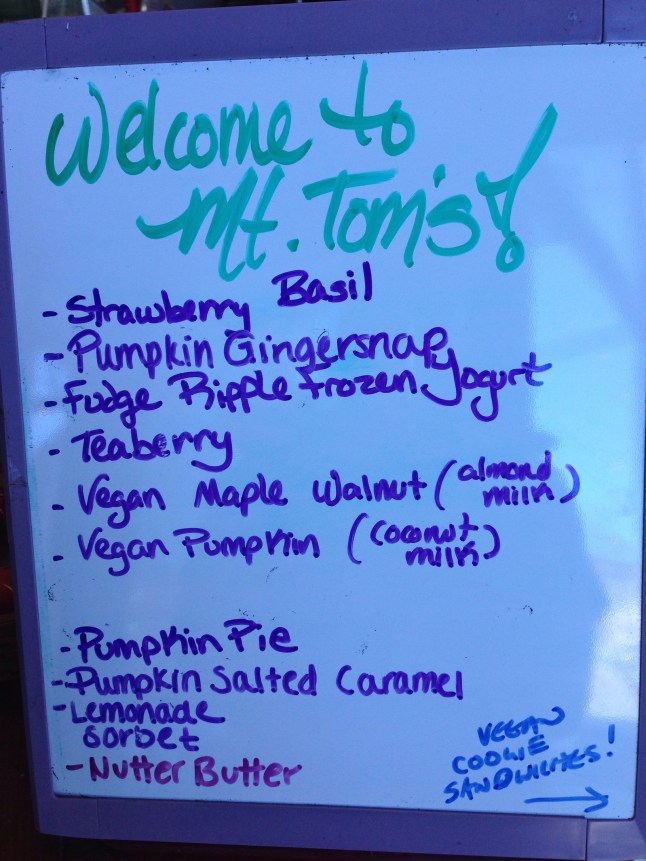 Welcome to
Mt. Tom's!
- Strawberry Basil
- Pumpkin Gingersnap
- Fudge Ripple Frozen Yogurt
- Teaberry
- Vegan Maple Walnut (almond milk)
- Vegan Pumpkin (coconut milk)
- Pumpkin Pie
- Pumpkin Salted Caramel
- Lemonade
Sorbet
- Nutter Butter
VEGAN
COOKIE
SANDWICHES!